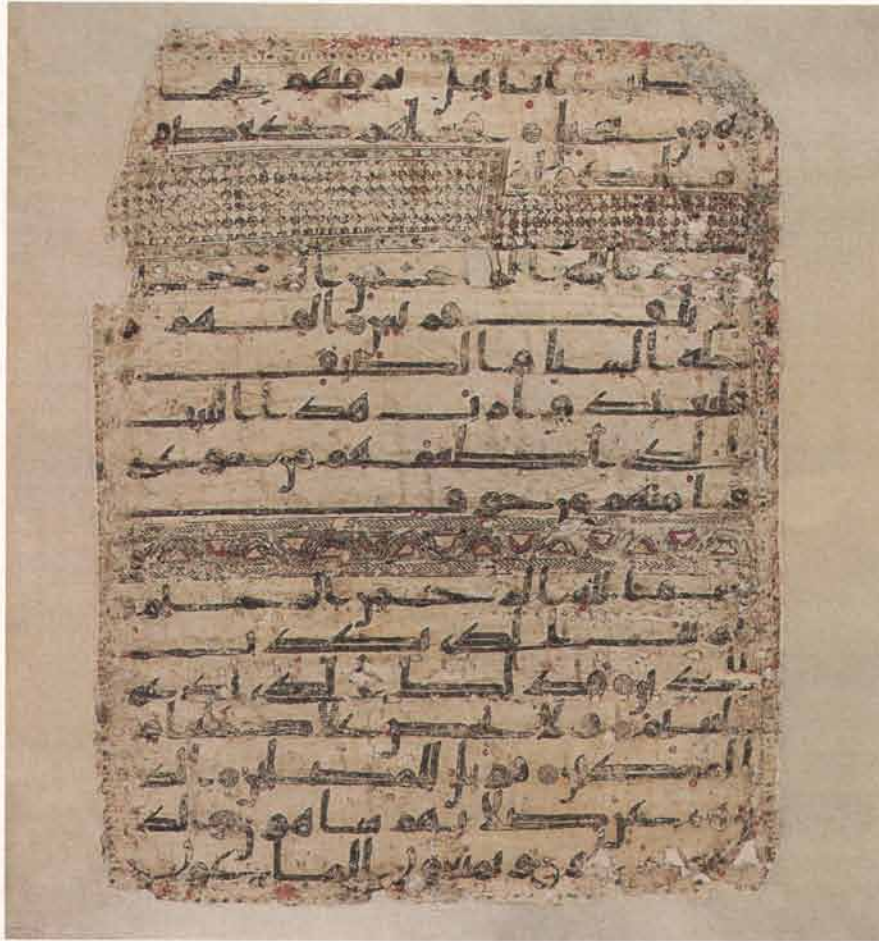 طيرا ابابيل ترميهم بحجا
رة من سجيل فجعلهم كعصف
ماكول
بسم الله الرحمن الرحيم
لايلف قريش الفهم
رحلة الشتا والصيف
فليعبدوا رب هذا البيت
الذي اطعمهم من جوع
وامنهم من خوف
بسم الله الرحمن الرحيم
اريت الذي يكذب
بالدين فذلك الذي يدع
اليتيم ولا يحض على طعام
المسكين فويل للمصلين الذ
ين هم عن صلاتهم ساهون الذ
ين هم يراون ويمنعون الماعون